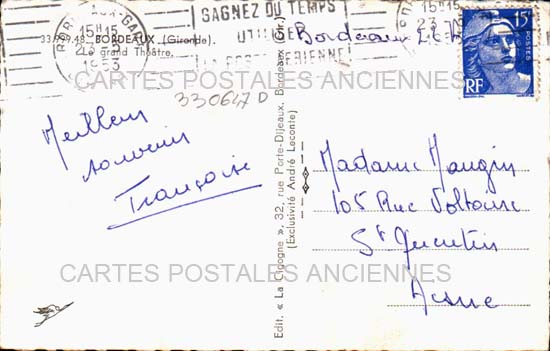 GARE
15H15
1953
GAGNEZ DU TEMPS
UTILISEZ
LA POSTE AERIENNE
15H15
23
Bordeaux
15F
POSTES
RF
33.999.48. BORDEAUX (Gironde).
Le grand Théâtre.
CARTES POSTALES ANCIENNES
330647 D
Meilleur
souvenir
Françoise
Edit. « La Cigogne », 32, rue Porte-Dijeaux, Bordeaux (Gir.)
(Exclusivité André Leconte)
Madame Maugin
105 Rue Voltaire
St Quentin
Aisne
CARTES POSTALES ANCIENNES